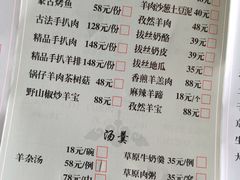 蒙古烤鱼 58元/份
古法手扒肉 128元/份
精品手扒肉 148元/份
精品手扒羊排 148元/份
锅仔羊肉茶树菇 48元
野山椒炒羊宝 88元
羊肉沙葱土豆泥 40元
孜然羊肉 48元
拔丝奶皮 39元
拔丝奶豆腐
拔丝地瓜 35元
香煎羊羔肉 88元
麻辣羊蹄
孜然羊宝 88元
汤羹
羊杂汤 18元/碗
58元/例
78元/中
草原牛奶羹 35元/窝
草原肉粥 35元/窝